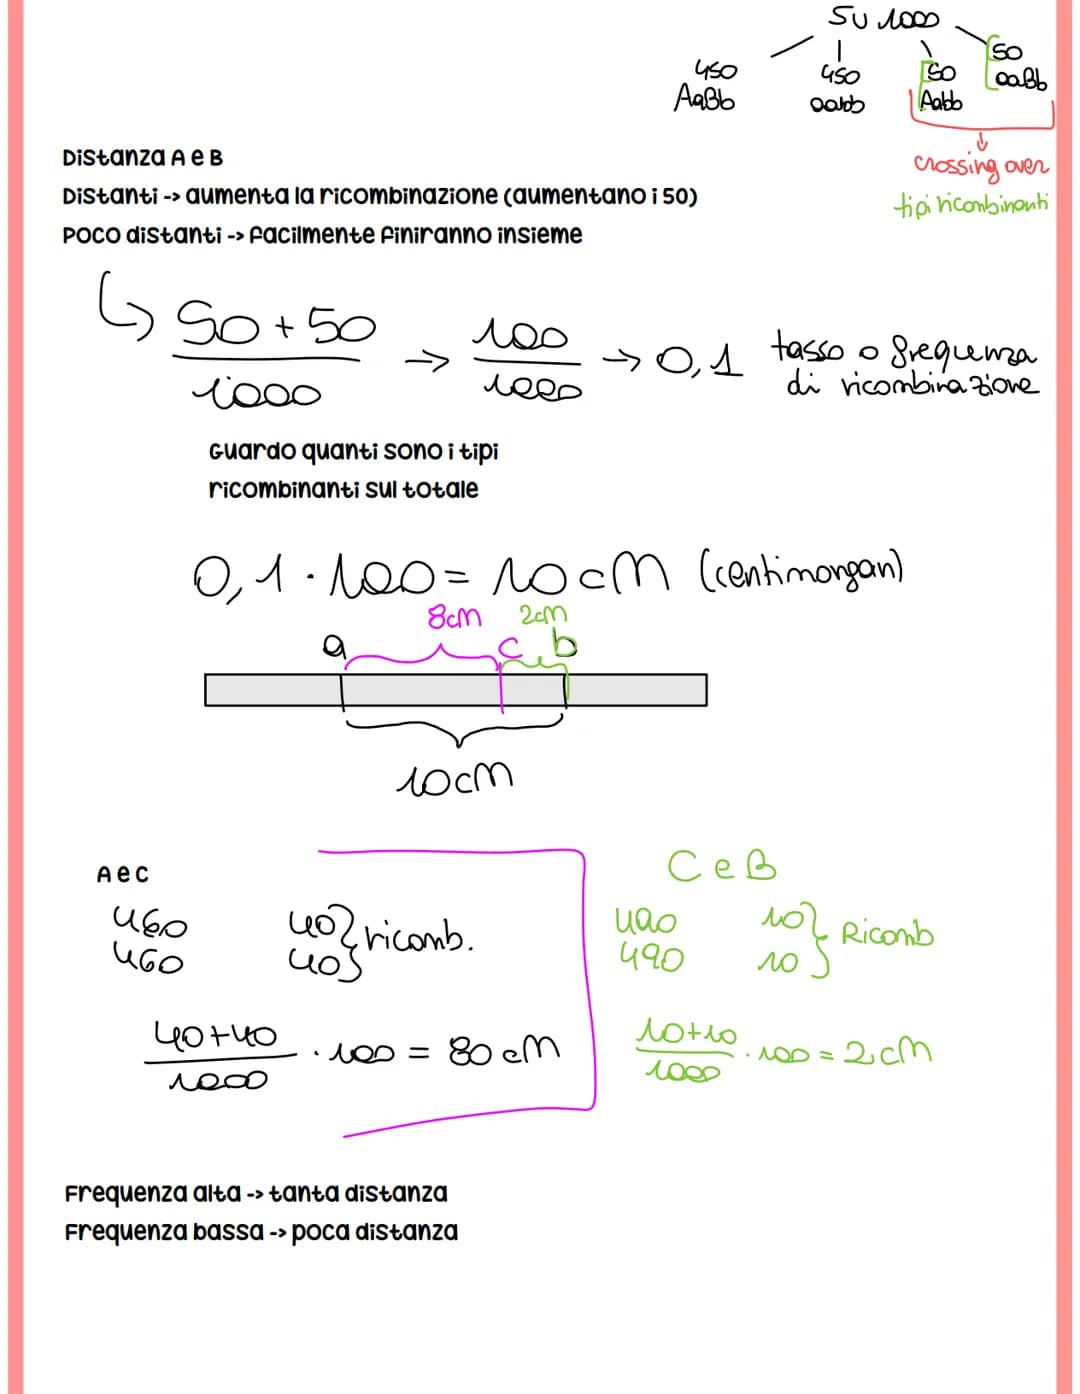 SU 1000
450 450 50 50
AaBb aabb Aabb aaBb
crossing over
tipi ricombinanti
Distanza A e B
Distanti -> aumenta la ricombinazione (aumentano i 50)
Poco distanti -> facilmente finiranno insieme
50+50 / 1000 → 100 / 1000 → 0,1 tasso o frequenza
di ricombinazione
Guardo quanti sono i tipi
ricombinanti sul totale
0,1 · 100 = 10 cM (centimorgan)
8cM 2cM
a c b
10cM
A e C
460 40
460 40 } ricomb.
40+40 / 1000 · 100 = 80 cM
C e B
490 10
490 10 } Ricomb
10+10 / 1000 · 100 = 2 cM
Frequenza alta -> tanta distanza
Frequenza bassa -> poca distanza